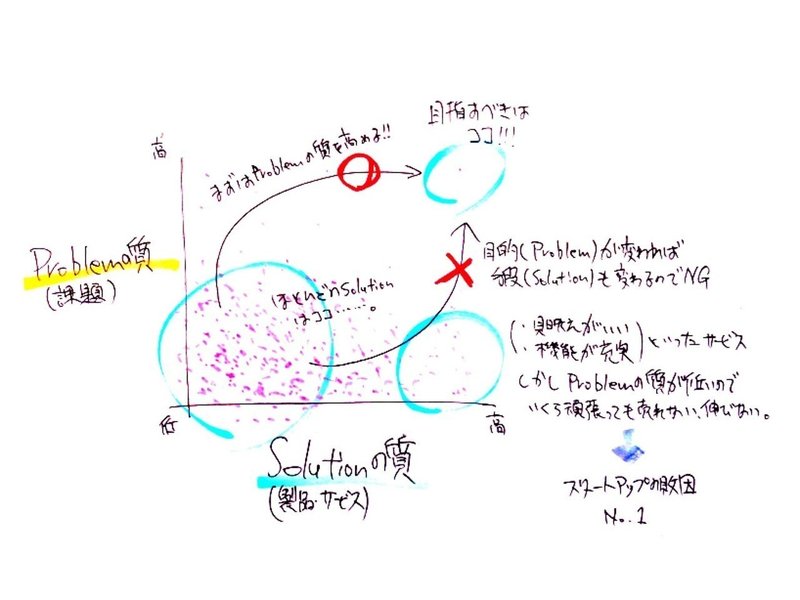 目指すべきは
ココ!!!
高
まずはProblemの質を高める!!
Problemの質
(課題)
目的(Problem)が変われば
手段(Solution)も変わるのでNG
ほとんどのSolution
はココ……。
・見映えがいい
・機能が充実
といったサービス
しかしProblemの質が低いので
いくら頑張っても売れない、伸びない。
低
高
Solutionの質
(製品・サービス)
スタートアップの敗因
No.1